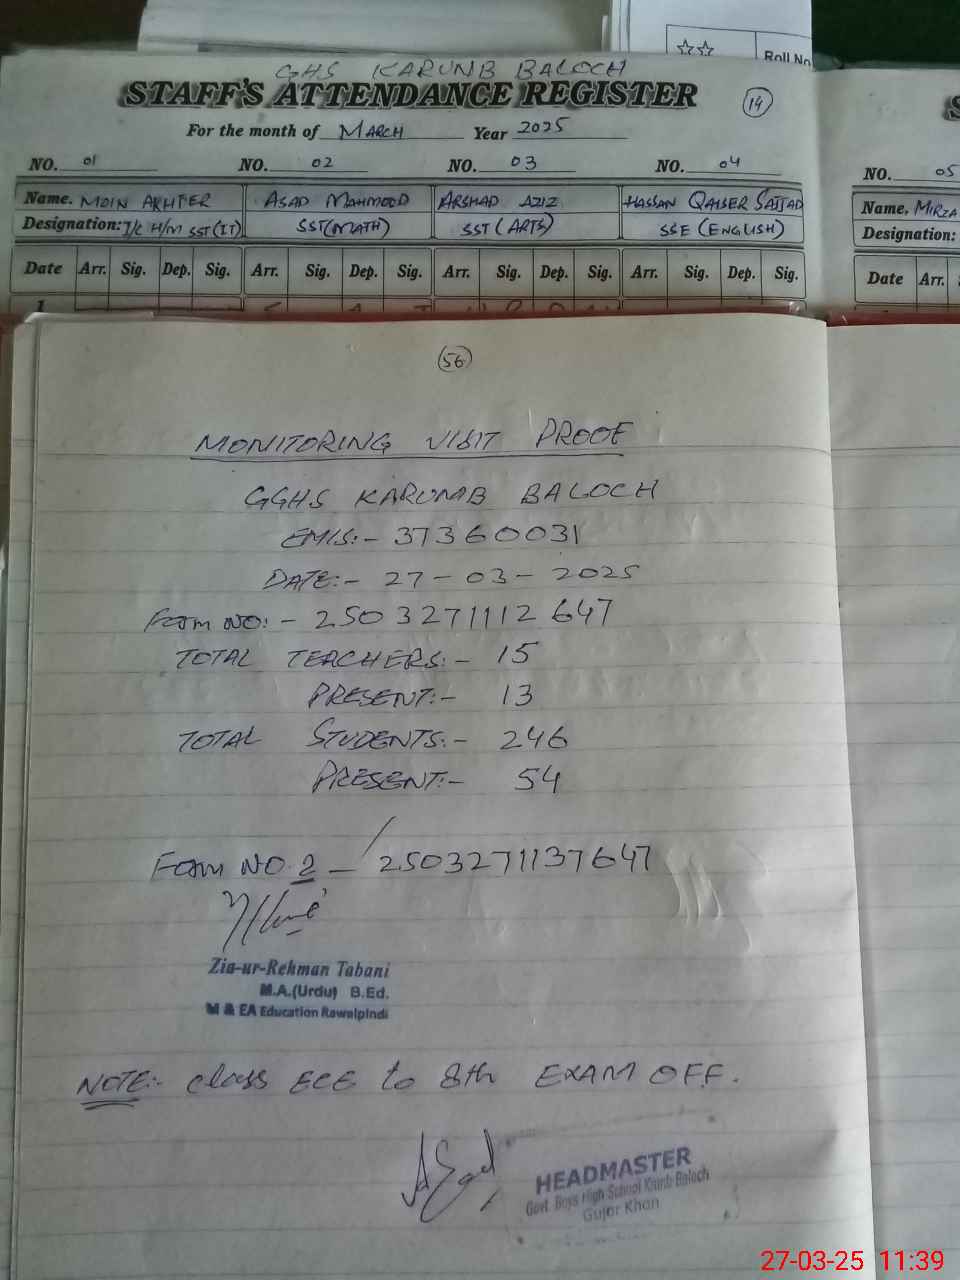 ☆☆
Roll No
GHS KARUMB BALOCH
STAFF'S ATTENDANCE REGISTER
14
For the month of MARCH Year 2025
NO. 01 NO. 02 NO. 03 NO. 04
Name. MOIN AKHTER ASAD MAHMOOD ARSHAD AZIZ HASSAN QAISER SAJJAD
Designation: I/C H/M SST(IT) SST(MATH) SST (ARTS) SSE (ENGLISH)
Date Arr. Sig. Dep. Sig. Arr. Sig. Dep. Sig. Arr. Sig. Dep. Sig. Arr. Sig. Dep. Sig.
1
S
NO. 05
Name, MIRZA
Designation:
Date Arr.
56
MONITORING VISIT PROOF
GGHS KARUMB BALOCH
EMIS:- 37360031
DATE:- 27-03-2025
Form NO:- 2503271112647
TOTAL TEACHERS:- 15
PRESENT:- 13
TOTAL STUDENTS:- 246
PRESENT:- 54
Form NO.2 - 2503271137647
Zia-ur-Rehman Tabani
M.A.(Urdu) B.Ed.
M & EA Education Rawalpindi
NOTE:- Class ECE to 8th EXAM OFF.
HEADMASTER
Govt. Boys High School Karnb Baloch
Gujar Khan
27-03-25 11:39